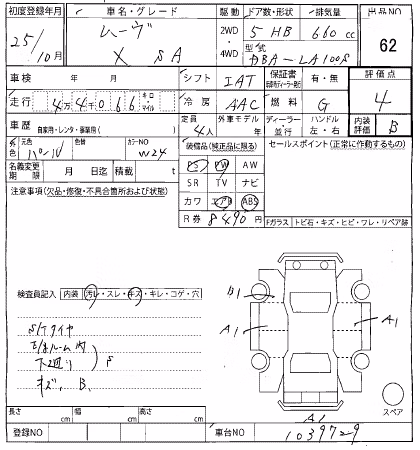 初度登録年月 車名・グレード 駆動 ドア数・形状 排気量 出品NO
25/10月 ムーヴ X SA 2WD 4WD 5 HB 660 cc 62
型式 DBA-LA100S
車検 年 月 シフト IAT 保証書 有・無 評価点
走行 4万4千066 キロ・マイル 冷房 AAC 燃料 G 4
車歴 自家用・レンタ・事業用( ) 定員 4人 外車モデル 年 ディーラー・並行 ハンドル 左・右 内装評価 B
外色 元色 パール 色替 カラーNO W24 装備品(純正品に限る) セールスポイント(正常に作動するもの)
名義変更期限 月 日迄 積載 t PS PW AW
注意事項(欠品・修復・不具合箇所および状態) SR TV ナビ
カワ エアB ABS
R券 8490円
Fガラス トビ石・キズ・ヒビ・ワレ・リペア跡
検査員記入 内装 汚レ・スレ・キズ・キレ・コゲ・穴
S/Tタイヤ
下廻り S
キズ、B.
B1
A1
A1
A1
スペア
長さ cm 幅 cm 高さ cm
登録NO 車台NO 1039729